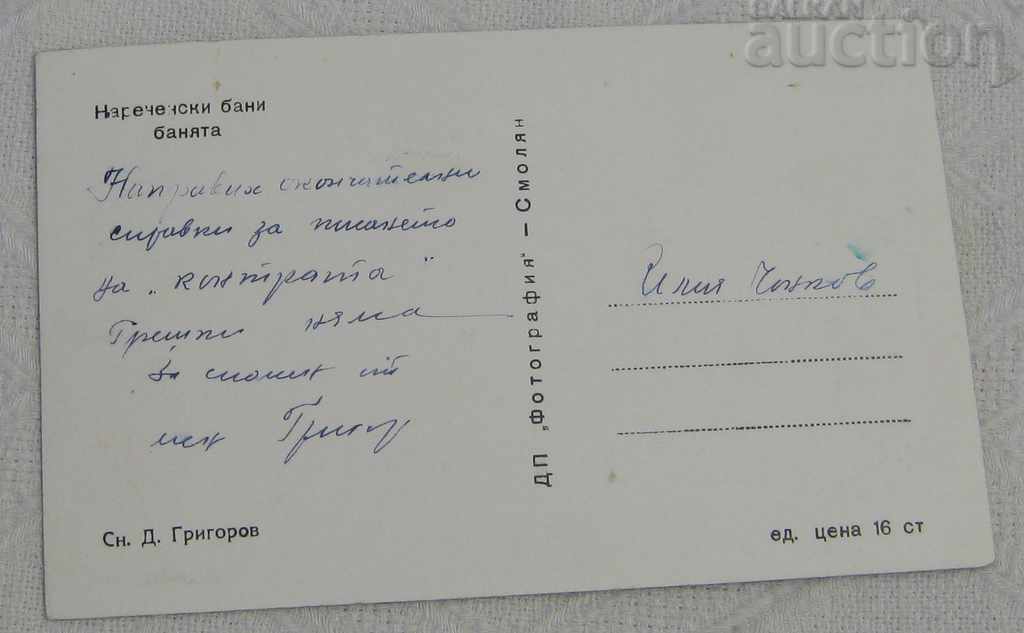 BALKAN
auction
Нареченски бани
банята
Направих окончателни
справки за писането
на „контрата"
Грешки няма
За спомен от
мен Григор
ДП „Фотография" – Смолян
Илия Чонков
Сн. Д. Григоров
ед. цена 16 ст